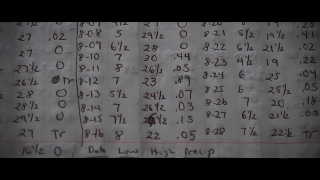 27 .02 8-08 5 29½ 0 8-21 5½ 19 .23
0 8-09 6½ 28 0 8-22 6½ 21½ .02
27½ 0 8-10 7 30 .44 8-23 4½ 19 .22
27½ 0 8-11 8 26½ .05 8-24 6 25 .04
26½ Tr 8-12 7 23 .89 8-25 6 25½ .05
28 0 8-13 5½ 24½ .07 8-26 7 20 .18
28½ 0 8-14 7 26½ .03 8-27 6½ 21½ .03
29½ 0 8-15 7½ .15
27 Tr 8-16 8 22 .05 8-28 7½ 22½ Tr
16½ 0 Date Low High Precip